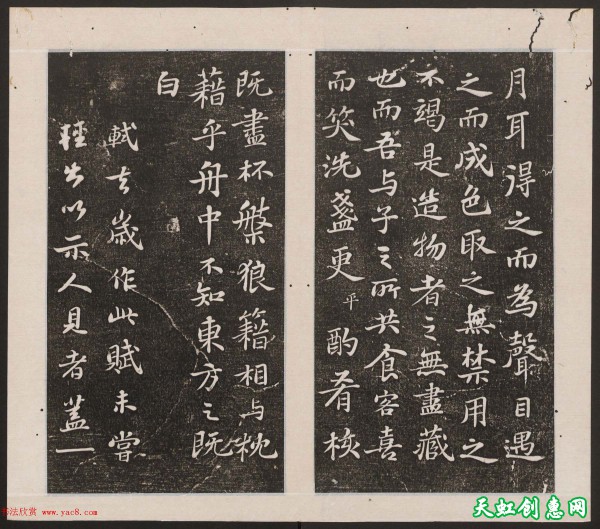 月耳得之而為聲目遇
之而成色取之無禁用之
不竭是造物者之無盡藏
也而吾与子之所共食客喜
而笑洗盞更平酌肴核
既盡杯槃狼籍相与枕
藉乎舟中不知東方之既
白
軾去歲作此賦未嘗
輕出以示人見者盖一
书法欣赏 www.yac8.com
天虹创惠网